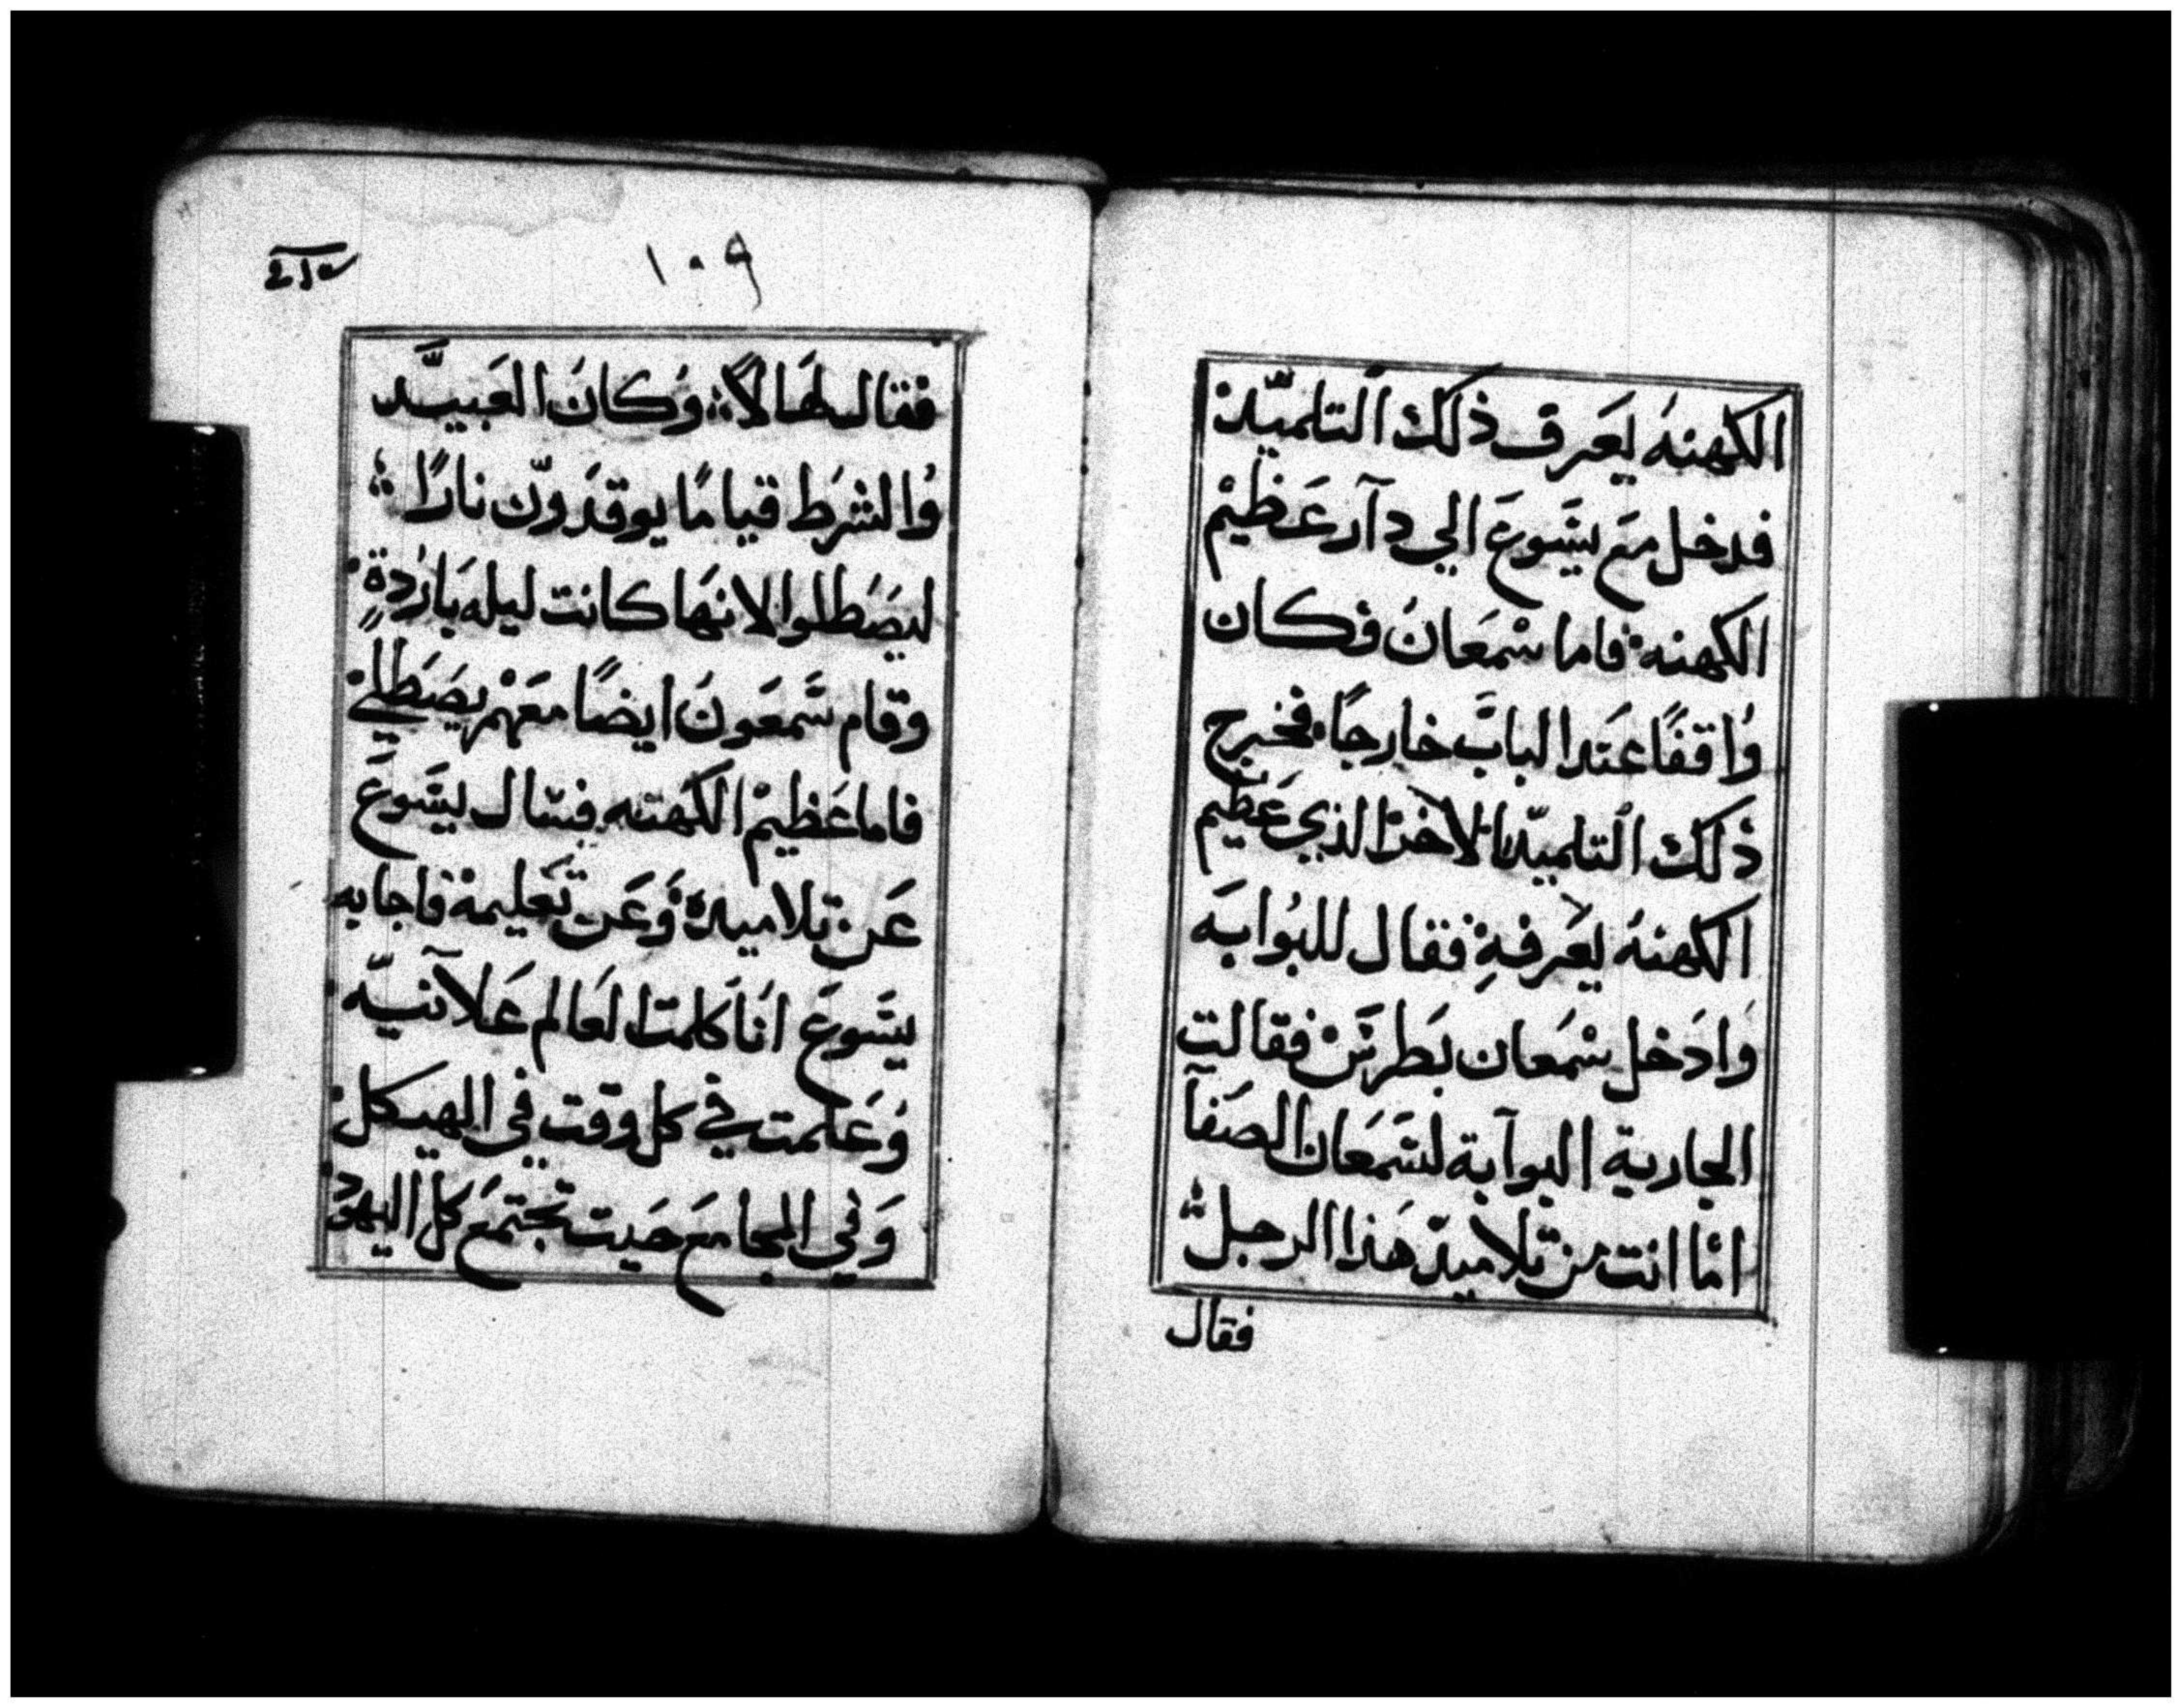 الكهنه يعرف ذلك التلميد
فدخل مع يشوع الي دار عظيم
الكهنه فاما سمعان فكان
واقفا عند الباب خارجا فخرج
ذلك التلميد الاخر الذي عظيم
الكهنه يعرفه فقال للبوابه
وادخل سمعان بطرس فقالت
الجارية البوابة لسمعان الصفا
اما انت من تلاميد هذا الرجل
فقال
١٠٩
فقال لها لا وكان العبيد
والشرط قياما يوقدون نارا
ليصطلوا لانها كانت ليله باردة
وقام سمعون ايضا معهم يصطلي
فاما عظيم الكهنه فسال يشوع
عن تلاميده وعن تعليمه فاجابه
يشوع انا كلمت العالم علانيه
وعلمت في كل وقت في الهيكل
وفي المجامع حيت تجتمع كل اليهود